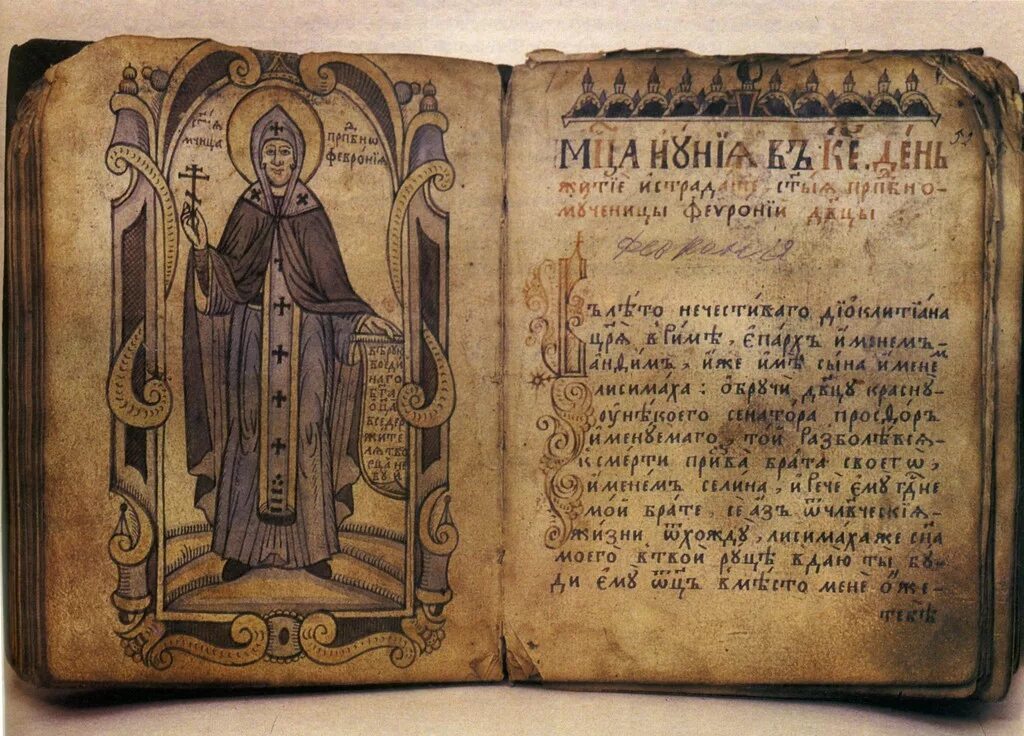 ст҃ая
мч҃ница
прпⷣбно
феѵронїѧ
вѣрую
во еди
наго
б҃га
ѻц҃а
вседер
жите
лѧ тво
рца не
бу и
59
Мц҃а їꙋнїѧ въ к҃е. де́нь
житїе и страданїе, ст҃ыѧ прпⷣбно-
мученицы феѵронїи дв҃цы
феврония
Въ лѣто нечести́ваго дїоклитїа́на
цр҃ѧ в ри́мѣ, є҆па́рхъ и҆́менемъ-
а҆нди́мъ, и҆́же имѣ̀ сы́на и҆менемⸯ
лисима́ха: ѡ҆бручи дв҃цу красну-
ю нѣ́коего сена́тора просфо́ръ
и҆менуемаго, то́й разболѣ́всѧ-
к сме́рти призва̀ бра́та своегѡ̀,
и҆́менемъ селина, и рече є҆му̀ гдⷭ҇не
мо́й бра́те, се а҆́зъ ѿ чл҃вческїѧ-
жи́зни ѿхожду̀, лисима́ха же сн҃а
моего̀ в твои̑ ру́цѣ вдаю̀ ты̀ бу-
ди є҆му̀ ѻ҆ц҃ъ вмѣ́сто мене ѻ҆же-
тебѣ